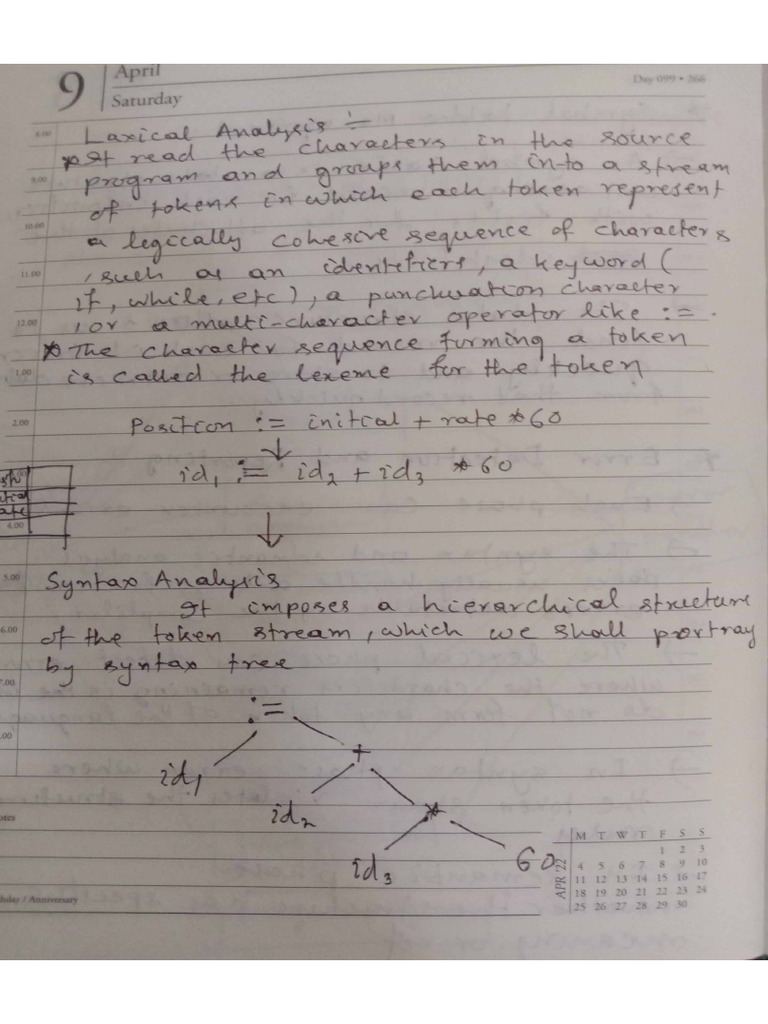 9
April
Day 099 • 266
Saturday
8.00
Laxical Analysis :-
* It read the characters in the source
9.00
program and groups them into a stream
of tokens in which each token represent
10.00
a legically cohesive sequence of characters
11.00
, such as an identifiers, a keyword (
if, while, etc), a puncuation character
12.00
, or a multi-character operator like := .
* The character sequence forming a token
1.00
is called the lexeme for the token
2.00
Position := initial + rate * 60
↓
id1 := id2 + id3 * 60
4.00
↓
5.00
Syntax Analysis
It imposes a hierarchical structure
6.00
of the token stream, which we shall portray
by syntax tree
7.00
:=
.00
id1 +
id2 *
otes
id3 60
APR '22
M T W T F S S
1 2 3
4 5 6 7 8 9 10
11 12 13 14 15 16 17
18 19 20 21 22 23 24
25 26 27 28 29 30
thday / Anniversary